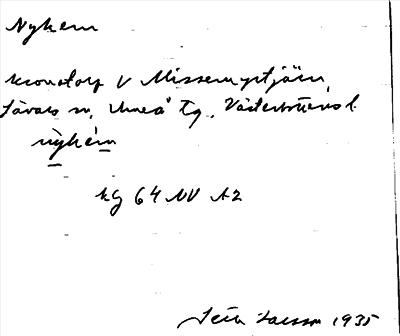 Nyhem
kronotorp V Missemyrtjärn,
Sävars sn, Umeå tg., Västerbottens l.
nyhem
kg 64 NV A2
Larsson 1935